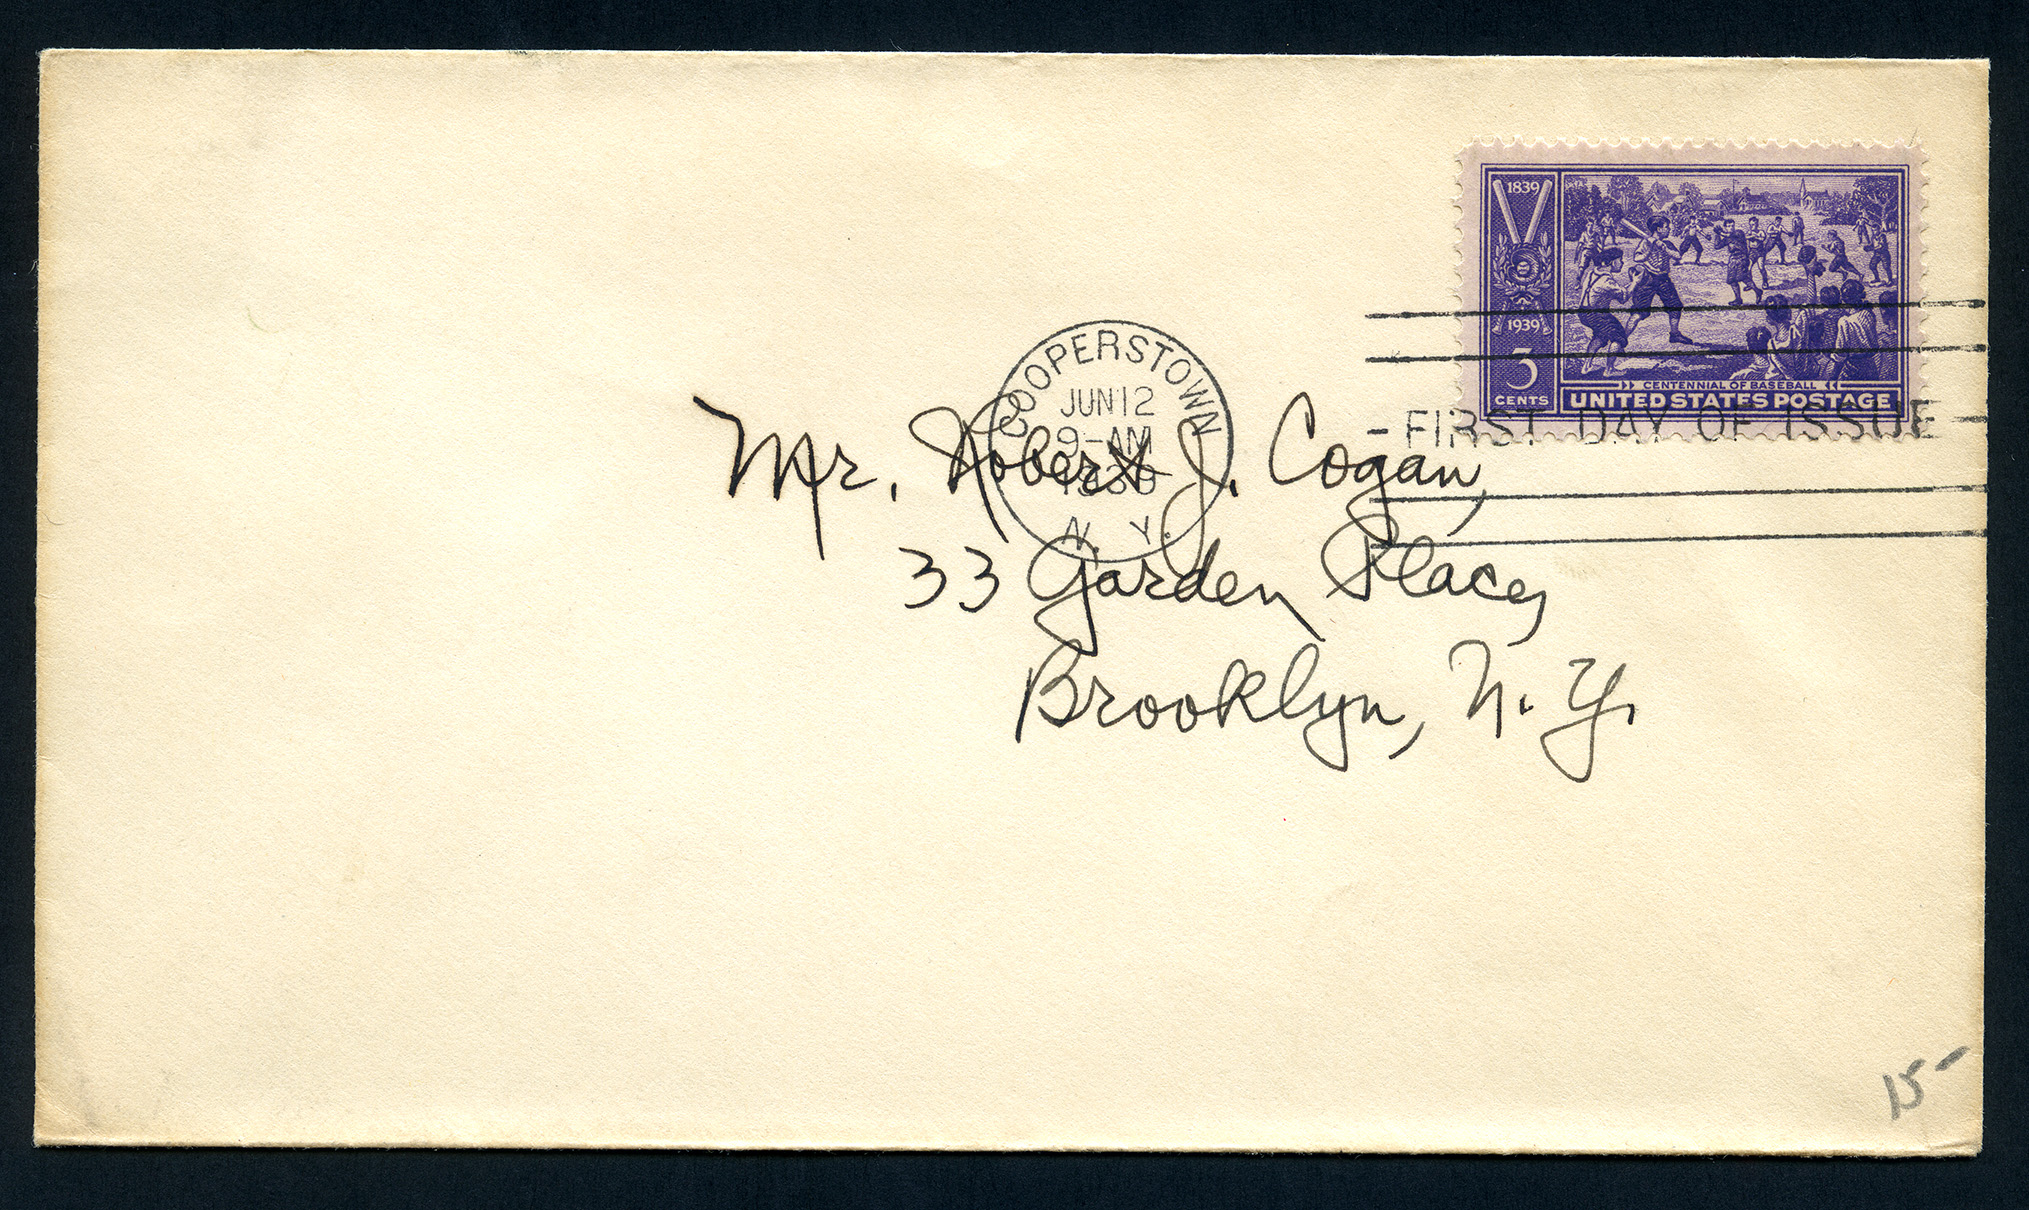 1839
1939
3
CENTS
CENTENNIAL OF BASEBALL
UNITED STATES POSTAGE
COOPERSTOWN
JUN 12
9-AM
1939
N. Y.
- FIRST DAY OF ISSUE -
Mr. Robert J. Cogan,
33 Garden Place,
Brooklyn, N. Y.
15-